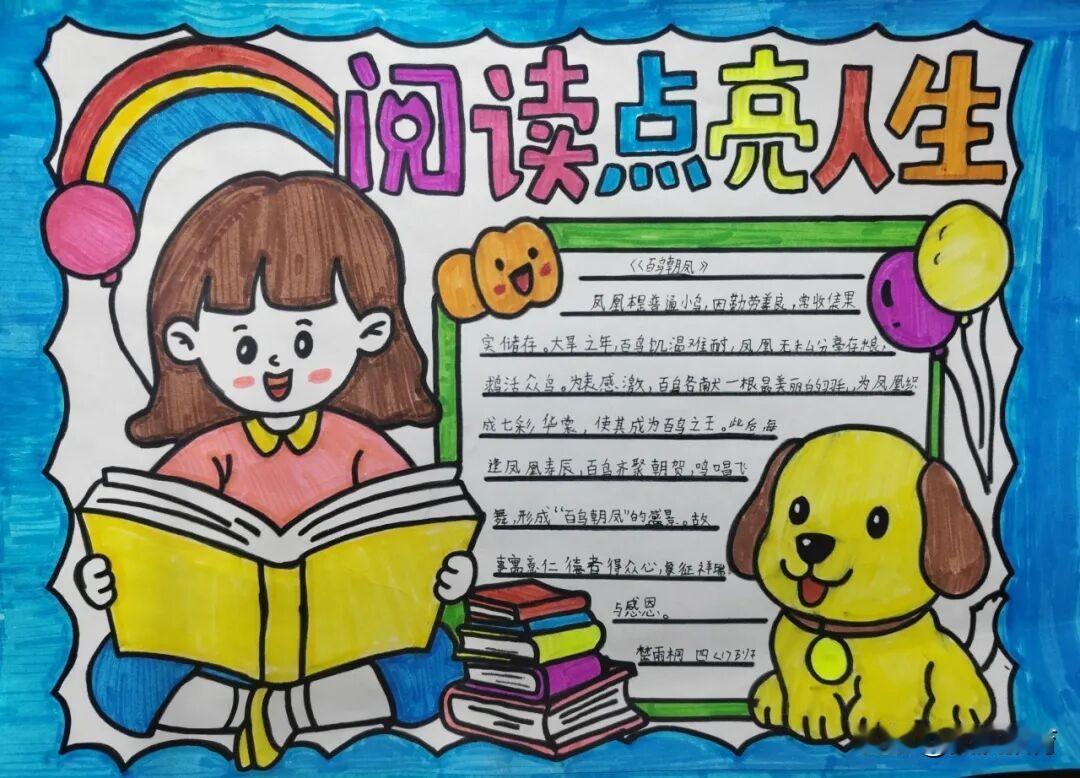 阅读点亮人生
《百鸟朝凤》
凤凰本是普通小鸟,因勤劳善良,常收集果
实储存。大旱之年,百鸟饥温难耐,凤凰无私分享存粮,
救活众鸟。为表感激,百鸟各献一根最美丽的羽毛,为凤凰织
成七彩华裳,使其成为百鸟之王。此后每
逢凤凰寿辰,百鸟齐聚朝贺,鸣唱飞
舞,形成“百鸟朝凤”的盛景。故
事寓意仁德者得众心,象征祥瑞
与感恩。
楚雨桐 四